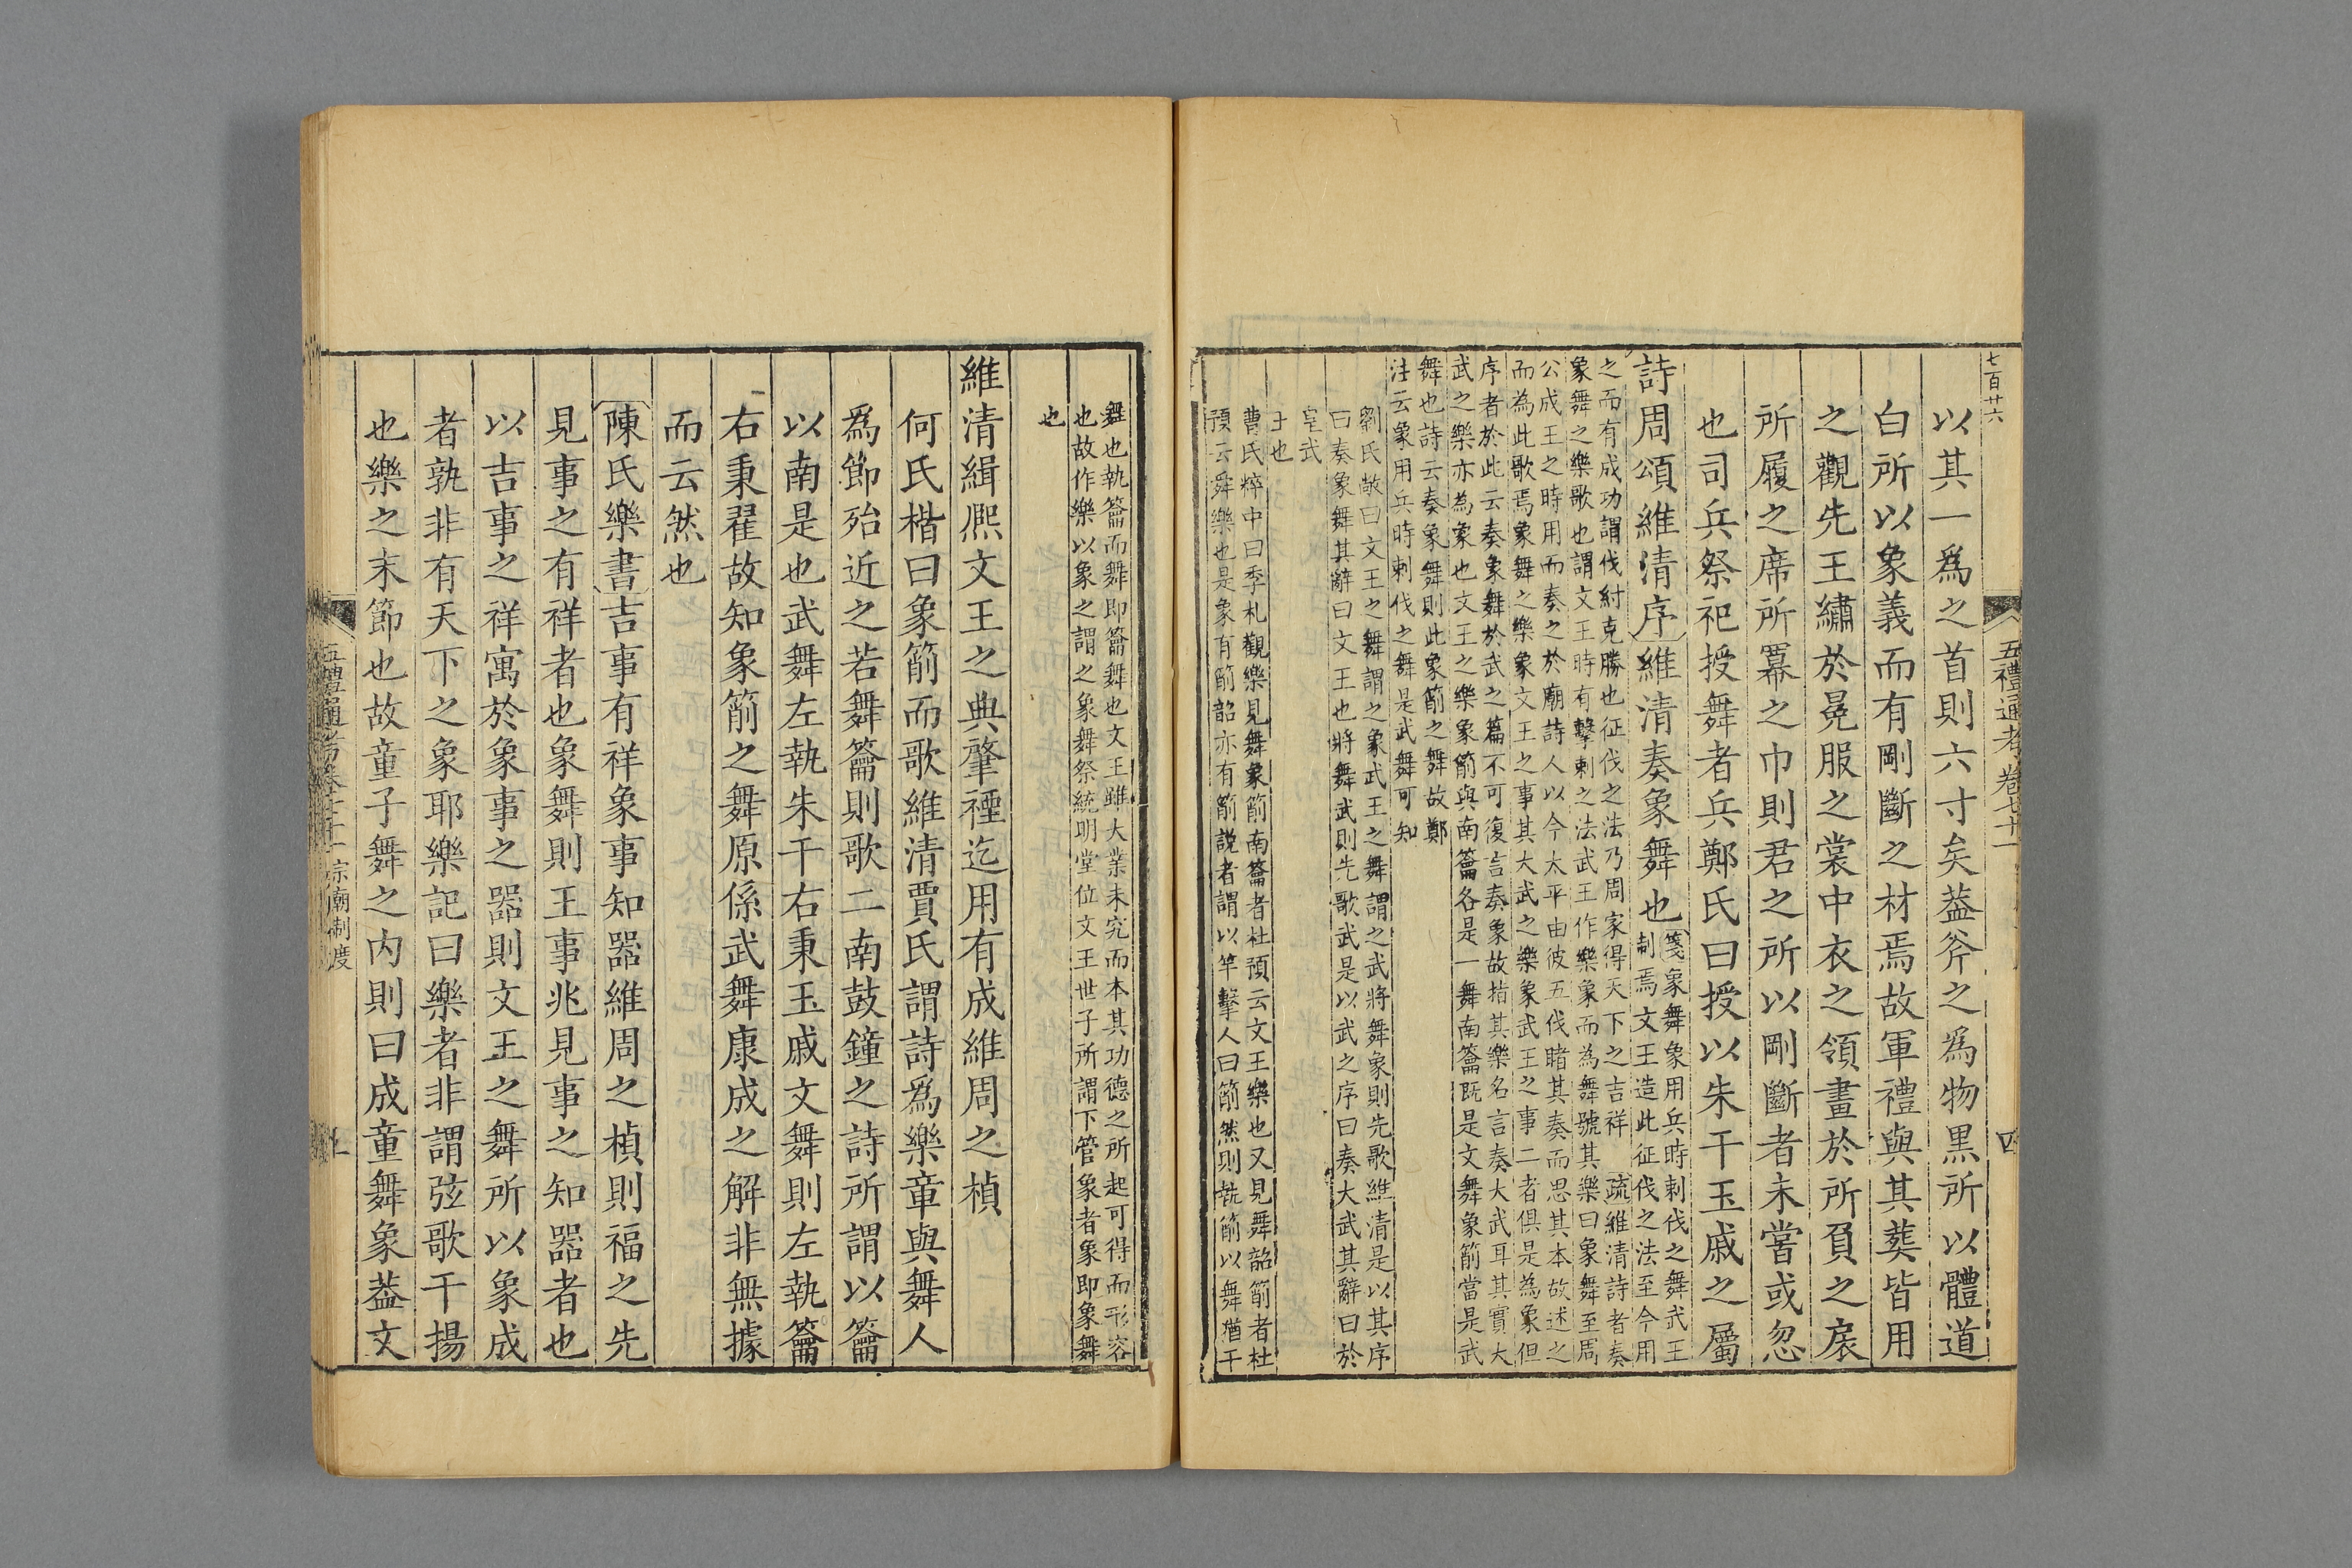 七百廿六
五禮通考卷七十一
四
以其一爲之首則六寸矣葢斧之爲物黑所以體道
白所以象義而有剛斷之材焉故軍禮與其葬皆用
之觀先王繡於冕服之裳中衣之領畫於所負之扆
所履之席所羃之巾則君之所以剛斷者未嘗或忽
也司兵祭祀授舞者兵鄭氏曰授以朱干玉戚之屬
詩周頌維清序維清奏象舞也
箋象舞象用兵時刺伐之舞武王
制焉文王造此征伐之法至今用
之而有成功謂伐紂克勝也征伐之法乃周家得天下之吉祥 疏維清詩者奏
象舞之樂歌也謂文王時有擊刺之法武王作樂象而為舞號其樂曰象舞至周
公成王之時用而奏之於廟詩人以今太平由彼五伐睹其奏而思其本故述之
而為此歌焉象舞之樂象文王之事其大武之樂象武王之事二者俱是為象但
序者於此云奏象舞於武之篇不可復言奏象故指其樂名言奏大武耳其實大
武之樂亦為象也文王之樂象箾與南籥各是一舞南籥既是文舞象箾當是武
舞也詩云奏象舞則此象箾之舞故鄭
注云象用兵時刺伐之舞是武舞可知
劉氏敞曰文王之舞謂之象武王之舞謂之武將舞象則先歌維清是以其序
曰奏象舞其辭曰文王也將舞武則先歌武是以武之序曰奏大武其辭曰於
皇武
王也
曹氏粹中曰季札觀樂見舞象箾南籥者杜預云文王樂也又見舞韶箾者杜
預云舜樂也是象有箾韶亦有箾説者謂以竿擊人曰箾然則執箾以舞猶干
舞也執籥而舞即籥舞也文王雖大業未究而本其功德之所起可得而形容
也故作樂以象之謂之象舞祭統明堂位文王世子所謂下管象者象即象舞
也
維清緝熈文王之典肇禋迄用有成維周之楨
何氏楷曰象箾而歌維清賈氏謂詩爲樂章與舞人
爲節殆近之若舞籥則歌二南鼓鐘之詩所謂以籥
以南是也武舞左執朱干右秉玉戚文舞則左執籥
右秉翟故知象箾之舞原係武舞康成之解非無據
而云然也
陳氏樂書吉事有祥象事知器維周之楨則福之先
見事之有祥者也象舞則王事兆見事之知器者也
以吉事之祥寓於象事之器則文王之舞所以象成
者孰非有天下之象耶樂記曰樂者非謂弦歌干揚
也樂之末節也故童子舞之内則曰成童舞象葢文
五禮通考卷七十一宗廟制度